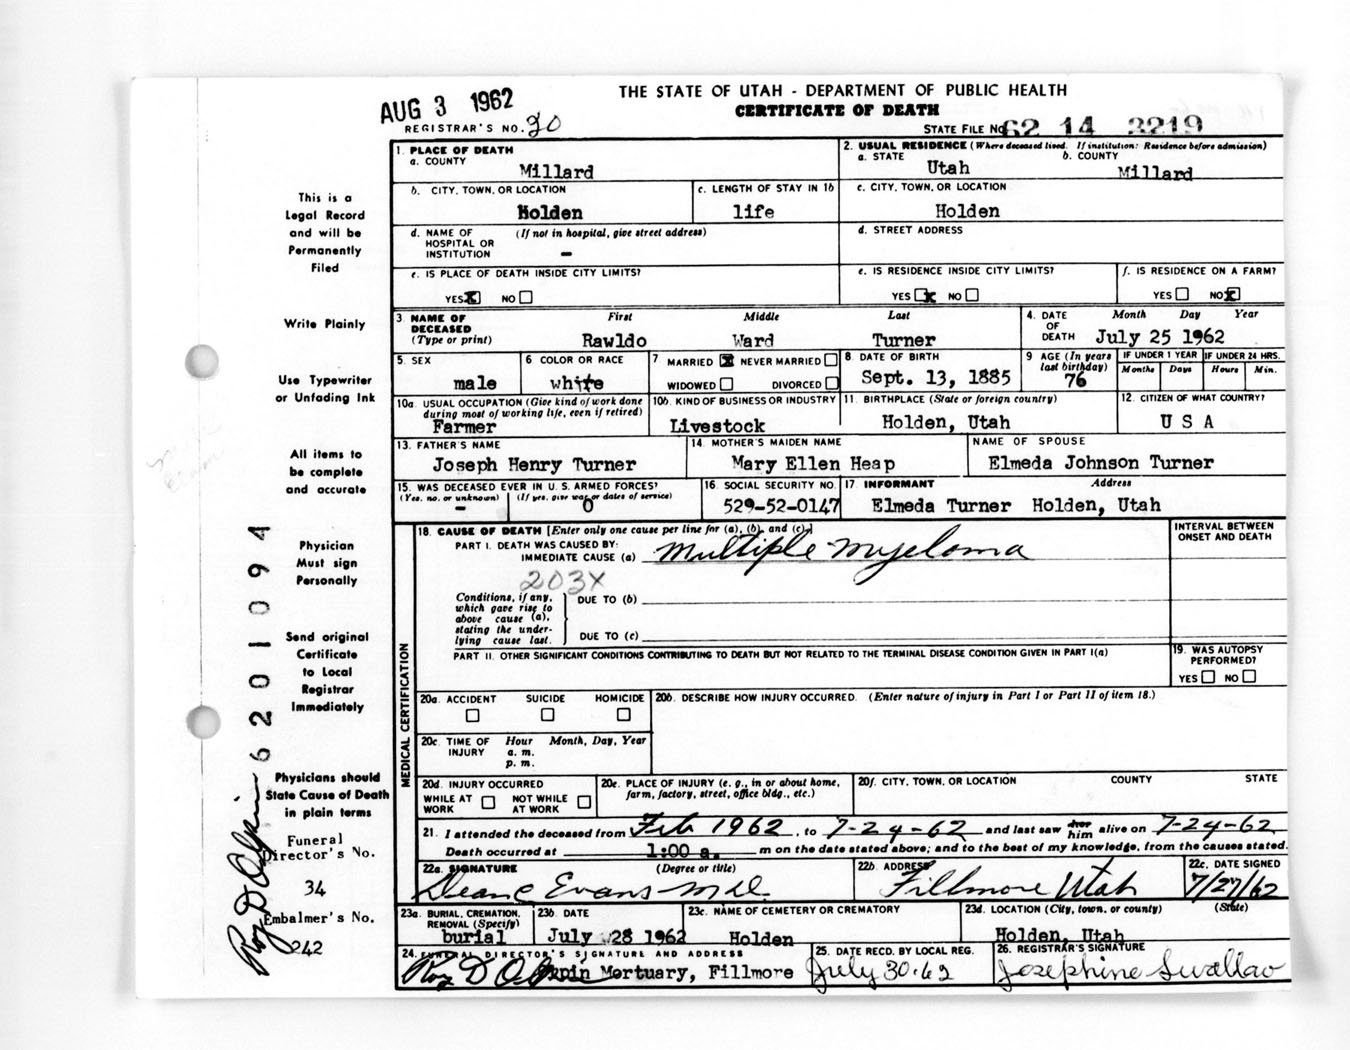 AUG 3 1962
THE STATE OF UTAH - DEPARTMENT OF PUBLIC HEALTH
CERTIFICATE OF DEATH
REGISTRAR'S NO. 30
STATE FILE NO. 62 14 2219
This is a
Legal Record
and will be
Permanently
Filed
Write Plainly
Use Typewriter
or Unfading Ink
All items to
be complete
and accurate
Physician
Must sign
Personally
Send original
Certificate
to Local
Registrar
Immediately
Physicians should
State Cause of Death
in plain terms
Funeral
Director's No.
34
Embalmer's No.
242
6201094
Roy D Olpin
1. PLACE OF DEATH
a. COUNTY
Millard
2. USUAL RESIDENCE (Where deceased lived. If institution: Residence before admission)
a. STATE
Utah
b. COUNTY
Millard
b. CITY, TOWN, OR LOCATION
Holden
c. LENGTH OF STAY IN 1b
life
c. CITY, TOWN, OR LOCATION
Holden
d. NAME OF HOSPITAL OR INSTITUTION
(If not in hospital, give street address)
-
d. STREET ADDRESS
e. IS PLACE OF DEATH INSIDE CITY LIMITS?
YES X NO
e. IS RESIDENCE INSIDE CITY LIMITS?
YES X NO
f. IS RESIDENCE ON A FARM?
YES NO X
3. NAME OF DECEASED (Type or print)
First Middle Last
Rawldo Ward Turner
4. DATE OF DEATH
Month Day Year
July 25 1962
5. SEX
male
6. COLOR OR RACE
white
7 MARRIED X NEVER MARRIED
WIDOWED DIVORCED
8. DATE OF BIRTH
Sept. 13, 1885
9. AGE (In years last birthday)
76
IF UNDER 1 YEAR
Months Days
IF UNDER 24 HRS.
Hours Min.
10a. USUAL OCCUPATION (Give kind of work done during most of working life, even if retired)
Farmer
10b. KIND OF BUSINESS OR INDUSTRY
Livestock
11. BIRTHPLACE (State or foreign country)
Holden, Utah
12. CITIZEN OF WHAT COUNTRY?
U S A
13. FATHER'S NAME
Joseph Henry Turner
14. MOTHER'S MAIDEN NAME
Mary Ellen Heap
NAME OF SPOUSE
Elmeda Johnson Turner
15. WAS DECEASED EVER IN U. S. ARMED FORCES?
(Yes, no, or unknown) (If yes, give war or dates of service)
- 0
16. SOCIAL SECURITY NO.
529-52-0147
17. INFORMANT Address
Elmeda Turner Holden, Utah
MEDICAL CERTIFICATION
18. CAUSE OF DEATH [Enter only one cause per line for (a), (b), and (c).]
INTERVAL BETWEEN ONSET AND DEATH
PART I. DEATH WAS CAUSED BY:
IMMEDIATE CAUSE (a) Multiple Myeloma
203X
Conditions, if any, which gave rise to above cause (a), stating the underlying cause last.
DUE TO (b)
DUE TO (c)
PART II. OTHER SIGNIFICANT CONDITIONS CONTRIBUTING TO DEATH BUT NOT RELATED TO THE TERMINAL DISEASE CONDITION GIVEN IN PART I(a)
19. WAS AUTOPSY PERFORMED?
YES NO
20a. ACCIDENT SUICIDE HOMICIDE
20b. DESCRIBE HOW INJURY OCCURRED. (Enter nature of injury in Part I or Part II of item 18.)
20c. TIME OF INJURY
Hour Month, Day, Year
a. m.
p. m.
20d. INJURY OCCURRED
WHILE AT WORK NOT WHILE AT WORK
20e. PLACE OF INJURY (e. g., in or about home, farm, factory, street, office bldg., etc.)
20f. CITY, TOWN, OR LOCATION COUNTY STATE
21. I attended the deceased from Feb 1962, to 7-24-62 and last saw her him alive on 7-24-62
Death occurred at 1:00 a. m on the date stated above; and to the best of my knowledge, from the causes stated.
22a. SIGNATURE (Degree or title)
Deane Evans MD.
22b. ADDRESS
Fillmore Utah
22c. DATE SIGNED
7/27/62
23a. BURIAL, CREMATION, REMOVAL (Specify)
burial
23b. DATE
July 28 1962
23c. NAME OF CEMETERY OR CREMATORY
Holden
23d. LOCATION (City, town, or county) (State)
Holden, Utah
24. FUNERAL DIRECTOR'S SIGNATURE AND ADDRESS
Roy D Olpin Mortuary, Fillmore
25. DATE RECD. BY LOCAL REG.
July 30-62
26. REGISTRAR'S SIGNATURE
Josephine Swallow